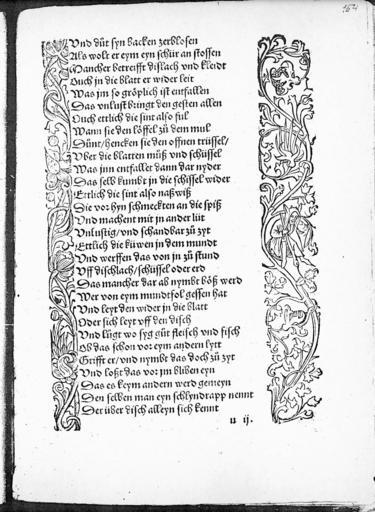 164
Vnd důt syn backen zerblosen
Als wolt er eym eyn schür an stossen
Mancher betreifft dislach vnd kleidt
Ouch jn die blatt er wider leit
Was jm so gröplich ist entfallen
Das vnlust bringt den gesten allen
Ouch ettlich die sint also ful
Wann sie den löffel zů dem mul
Důnt / hencken sie den offnen trüssel /
Vber die blatten můß vnd schüssel
Was jnn entfallet dann dar nyder
Das selb kumbt jn die schissel wider
Ettlich die sint also naßwiß
Die vor hyn schmeckten an die spiß
Vnd machent mit jn ander lüt
Vnlustig / vnd schandbar zů zyt
Ettlich die küwen jn dem mundt
Vnd werffen das von jn zů stund
Vff dischlach / schüssel oder erd
Das mancher dar ab nymbt böß werd
Wer von eym mundtfol gessen hat
Vnd leyt den wider jn die blatt
Oder sich leyt vff den disch
Vnd lůgt wo syg gůt fleisch vnd fisch
Ob das schon vor eym andern lytt
Grifft er / vnd nymbt das doch zů zyt
Vnd loßt das vor jm bliben eyn
Das es keym andern werd gemeyn
Den selben man eyn schlyndrapp nennt
Der über disch alleyn sich kennt
u ij.